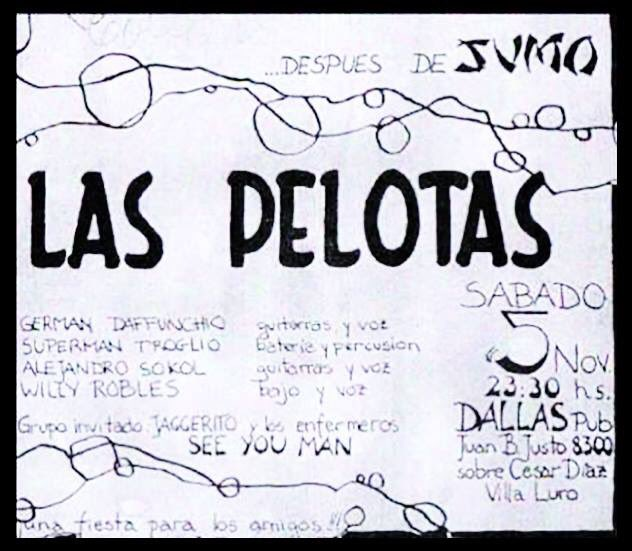 ...DESPUES DE SUMO
LAS PELOTAS
GERMAN DAFFUNCHIO guitarras y voz
SUPERMAN TROGLIO bateria y percusion
ALEJANDRO SOKOL guitarras y voz
WILLY ROBLES bajo y voz
Grupo invitado: JAGGERITO y los enfermeros
SEE YOU MAN
SABADO
5 Nov.
23:30 hs.
DALLAS Pub
Juan B. Justo 8300
sobre Cesar Diaz
Villa Luro
¡una fiesta para los amigos!!!